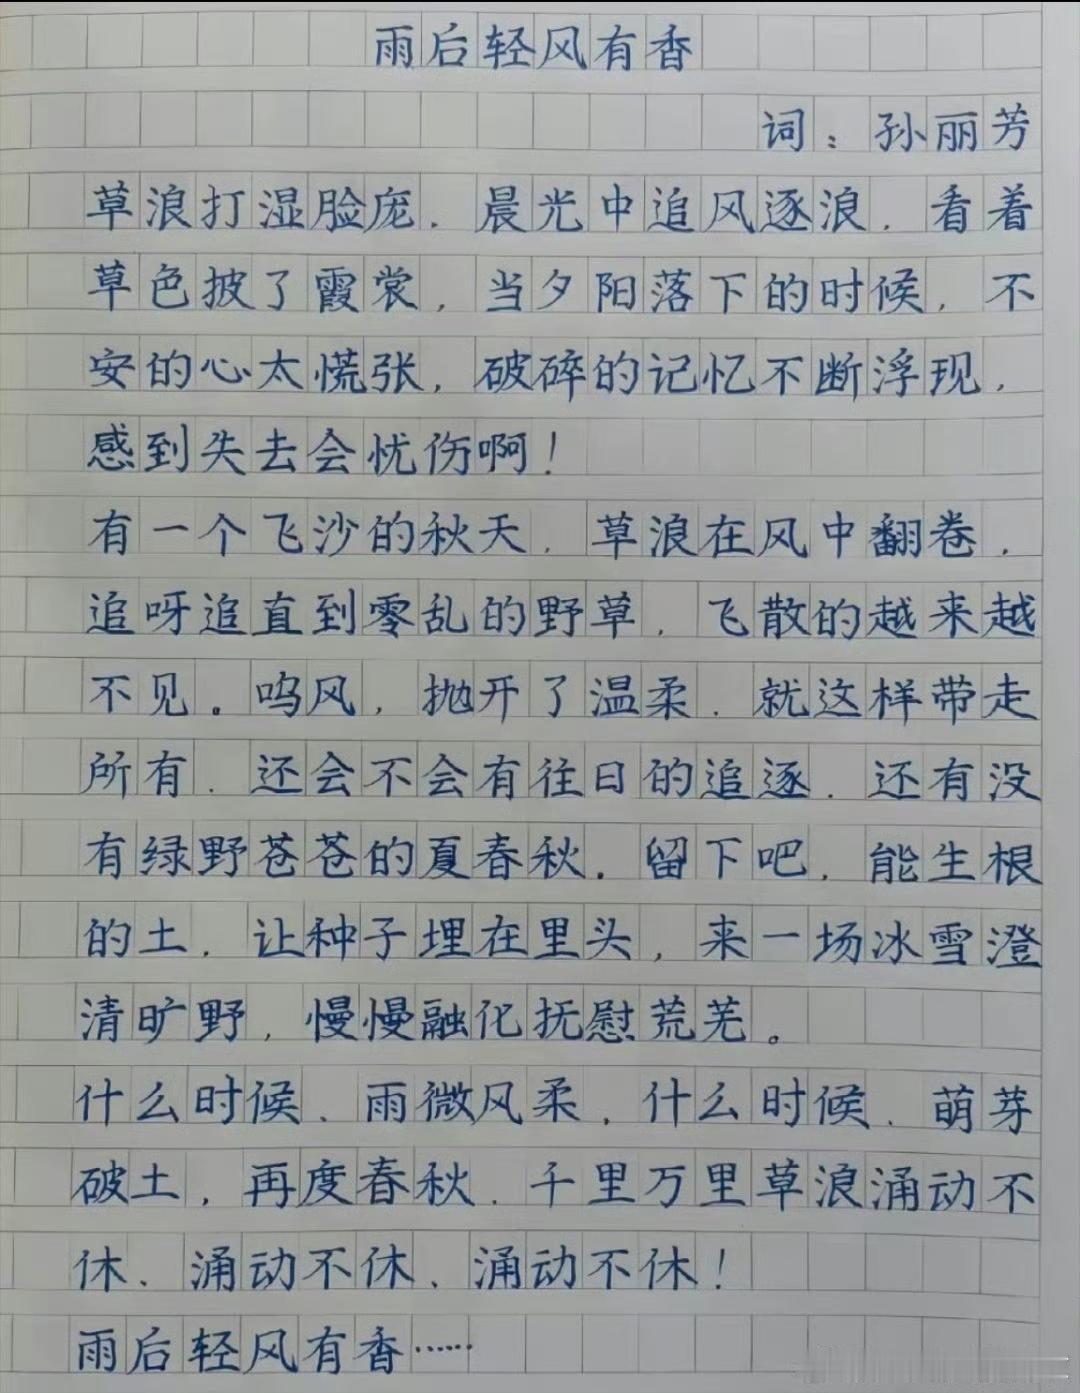 雨后轻风有香
词：孙丽芳
草浪打湿脸庞，晨光中追风逐浪，看着
草色披了霞裳，当夕阳落下的时候，不
安的心太慌张，破碎的记忆不断浮现，
感到失去会忧伤啊！
有一个飞沙的秋天，草浪在风中翻卷，
追呀追直到零乱的野草，飞散的越来越
不见。呜风，抛开了温柔，就这样带走
所有，还会不会有往日的追逐，还有没
有绿野苍苍的夏春秋。留下吧，能生根
的土，让种子埋在里头，来一场冰雪澄
清旷野，慢慢融化抚慰荒芜。
什么时候、雨微风柔，什么时候、萌芽
破土，再度春秋、千里万里草浪涌动不
休、涌动不休、涌动不休！
雨后轻风有香……